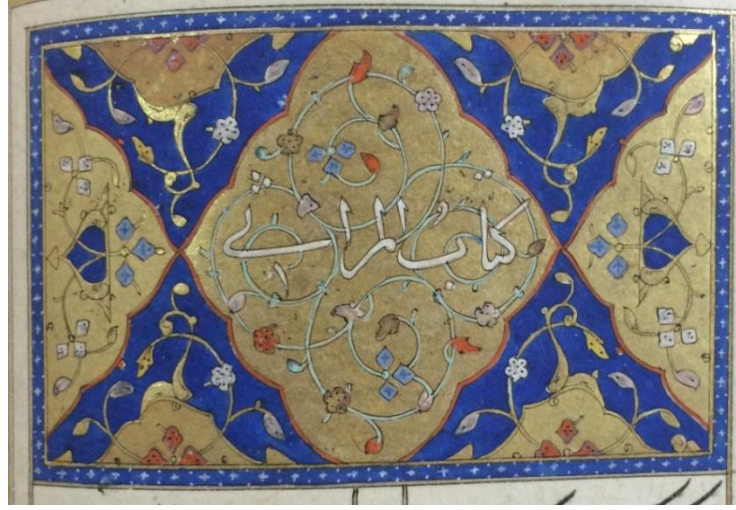 كتاب المراثي